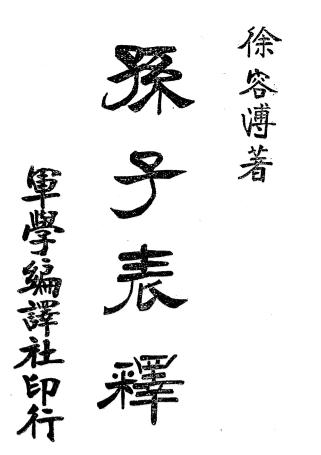 徐容溥著
孫子表釋
軍學編譯社印行